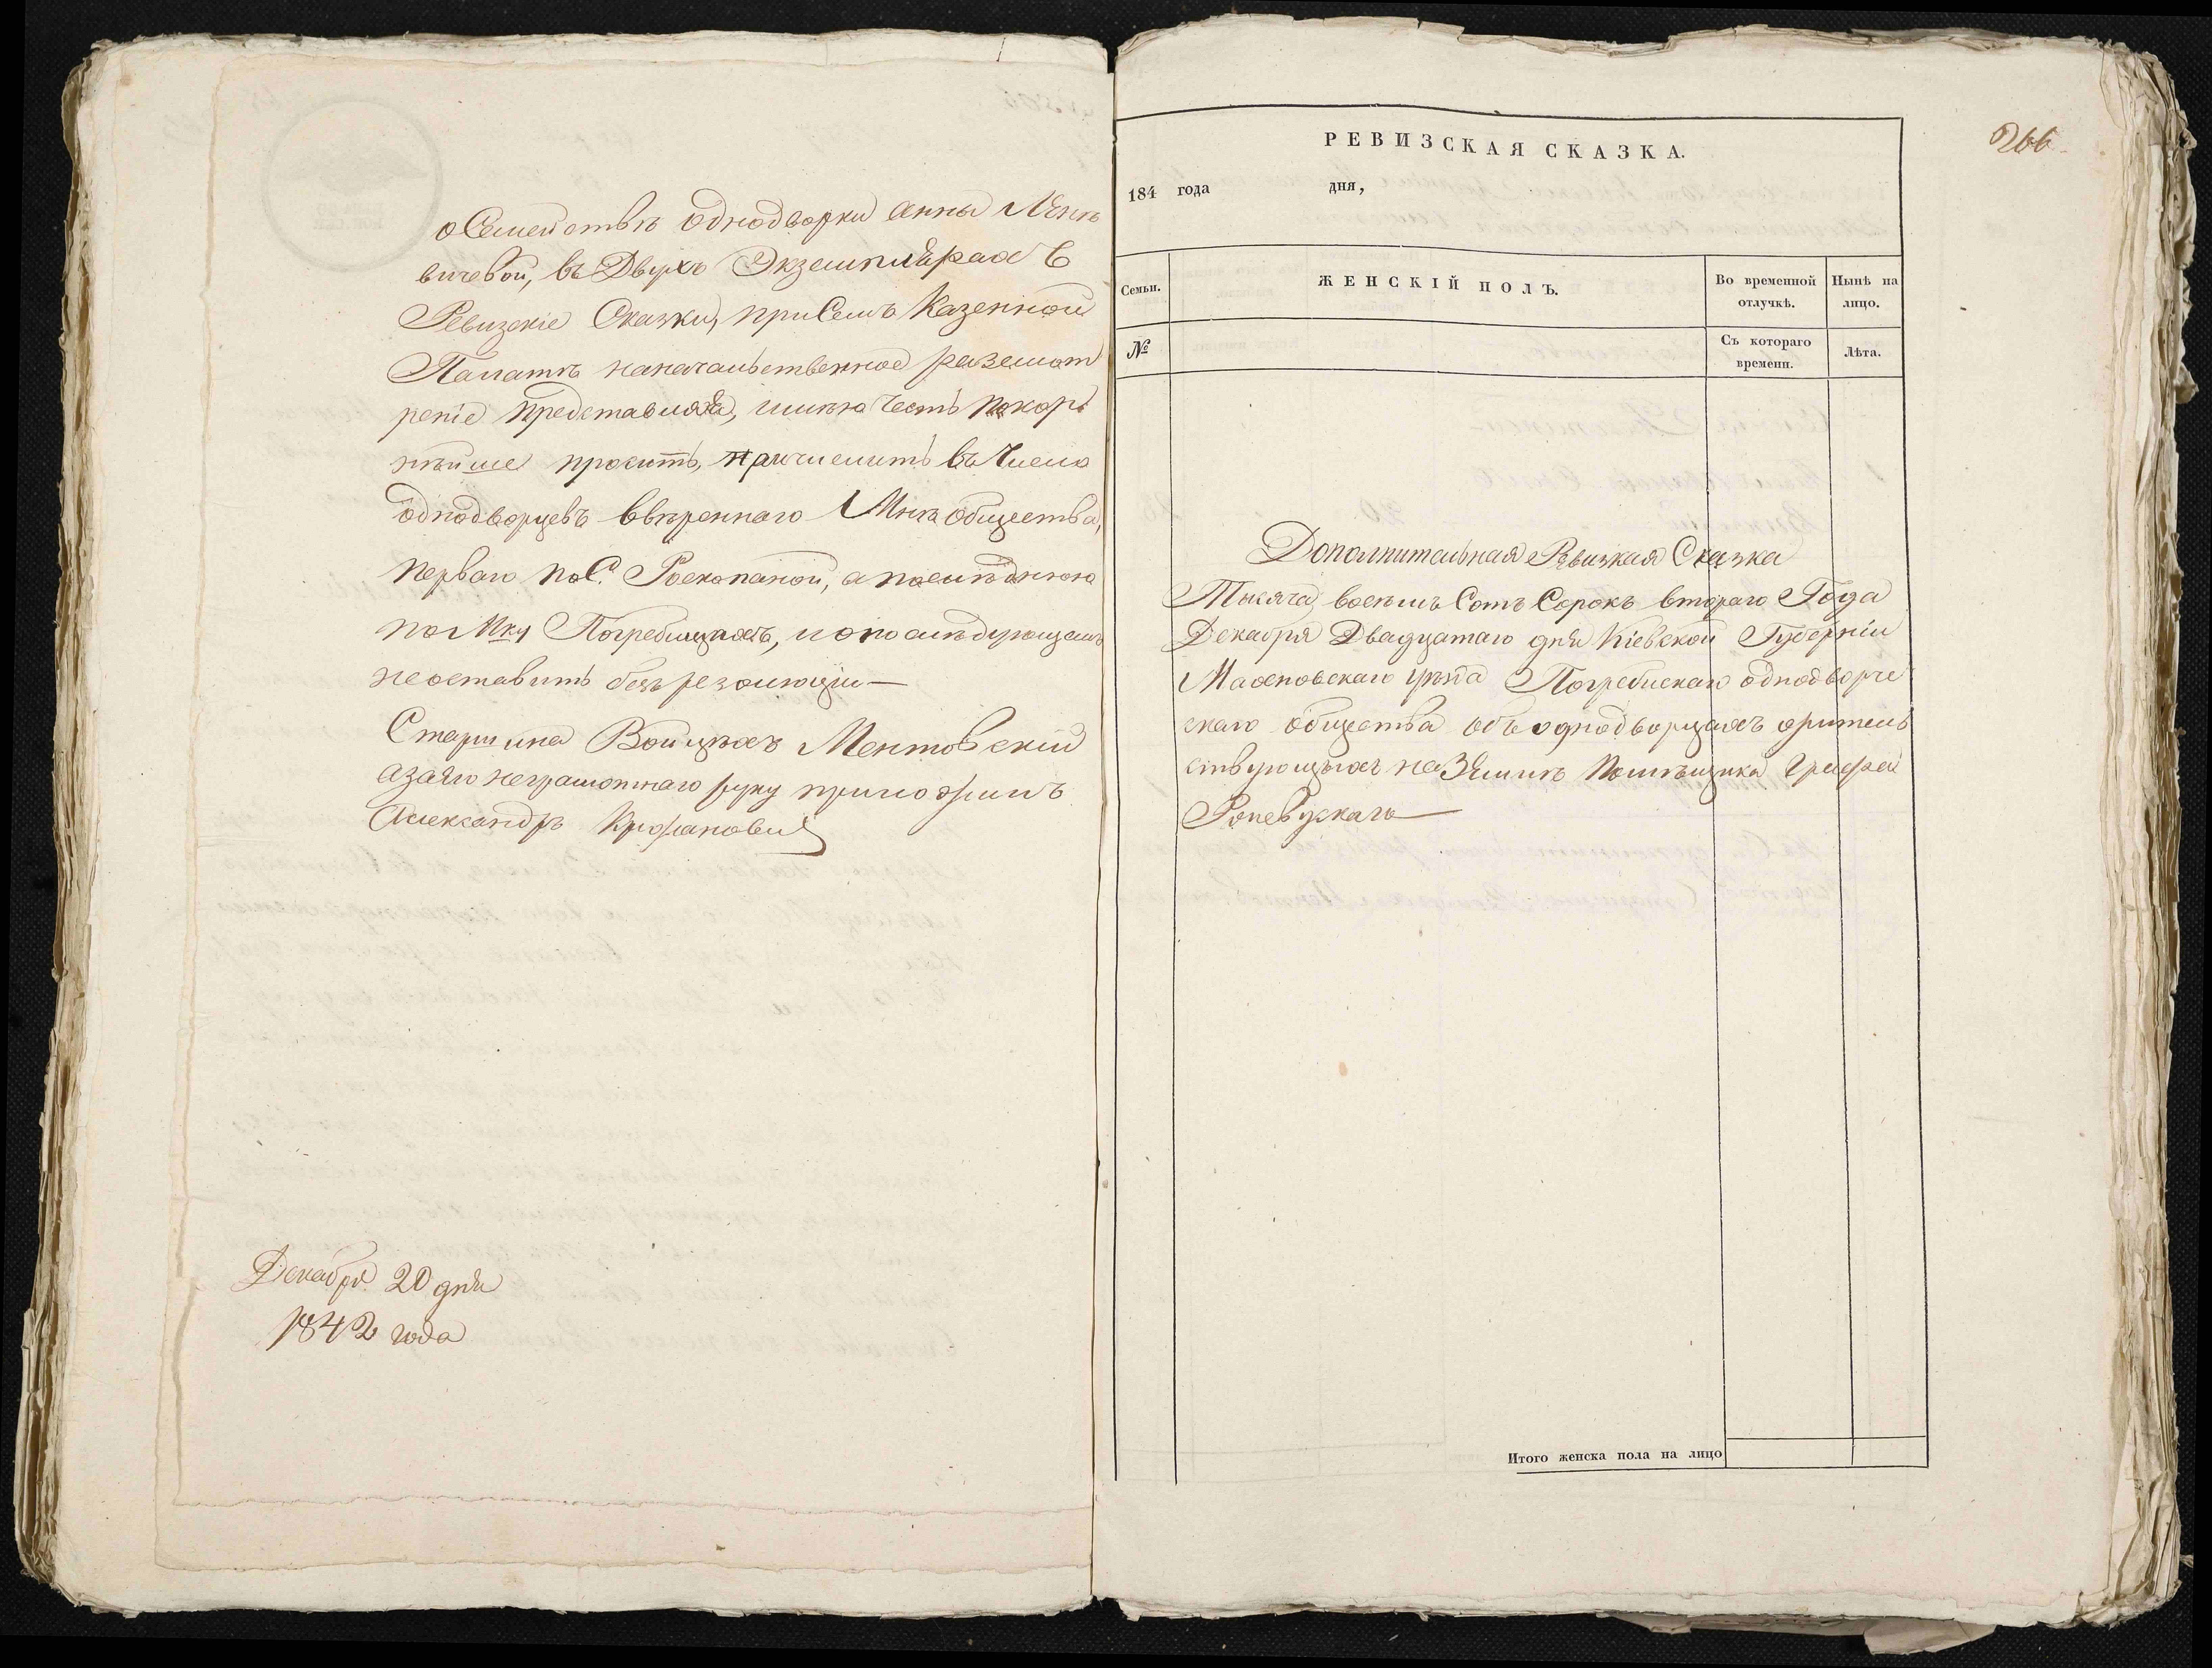 о Семействѣ однодворки Анны
вичевой, въ Двухъ Экземплярахъ
Ревизскіе Сказки, при Семъ Казенной
Палатѣ на начальственное разсмот
реніе представляя, имѣю честь покор
нѣйше просить, причислить въ число
однодворцевъ ввѣреннаго Мнѣ общества,
перваго по С. Роскопаной, а последнюю
по Мку Погребищахъ, и о послѣдующемъ
неоставить безъ резолюціи —
Старшина Войцѣхъ Ментовскій
а за его неграмотнаго руку приложилъ
Александръ
Декабря 20 дня
1842 года
266
РЕВИЗСКАЯ СКАЗКА.
184 года дня,
Семьи. ЖЕНСКІЙ ПОЛЪ. Во временной отлучкѣ. Нынѣ на лицо.
№ Съ котораго времени. Лѣта.
Дополнительная Ревизкая Сказка
Тысяча восемь Сотъ Сорокъ втораго Года
Декабря Двадцатаго дня Кіевской Губерніи
Махновскаго уѣзда Погребискаго однодворче
скаго общества объ однодворцахъ жритель
ствующихъ на Землѣ Помѣщика Графа
Ржевускаго —
Итого женска пола на лицо